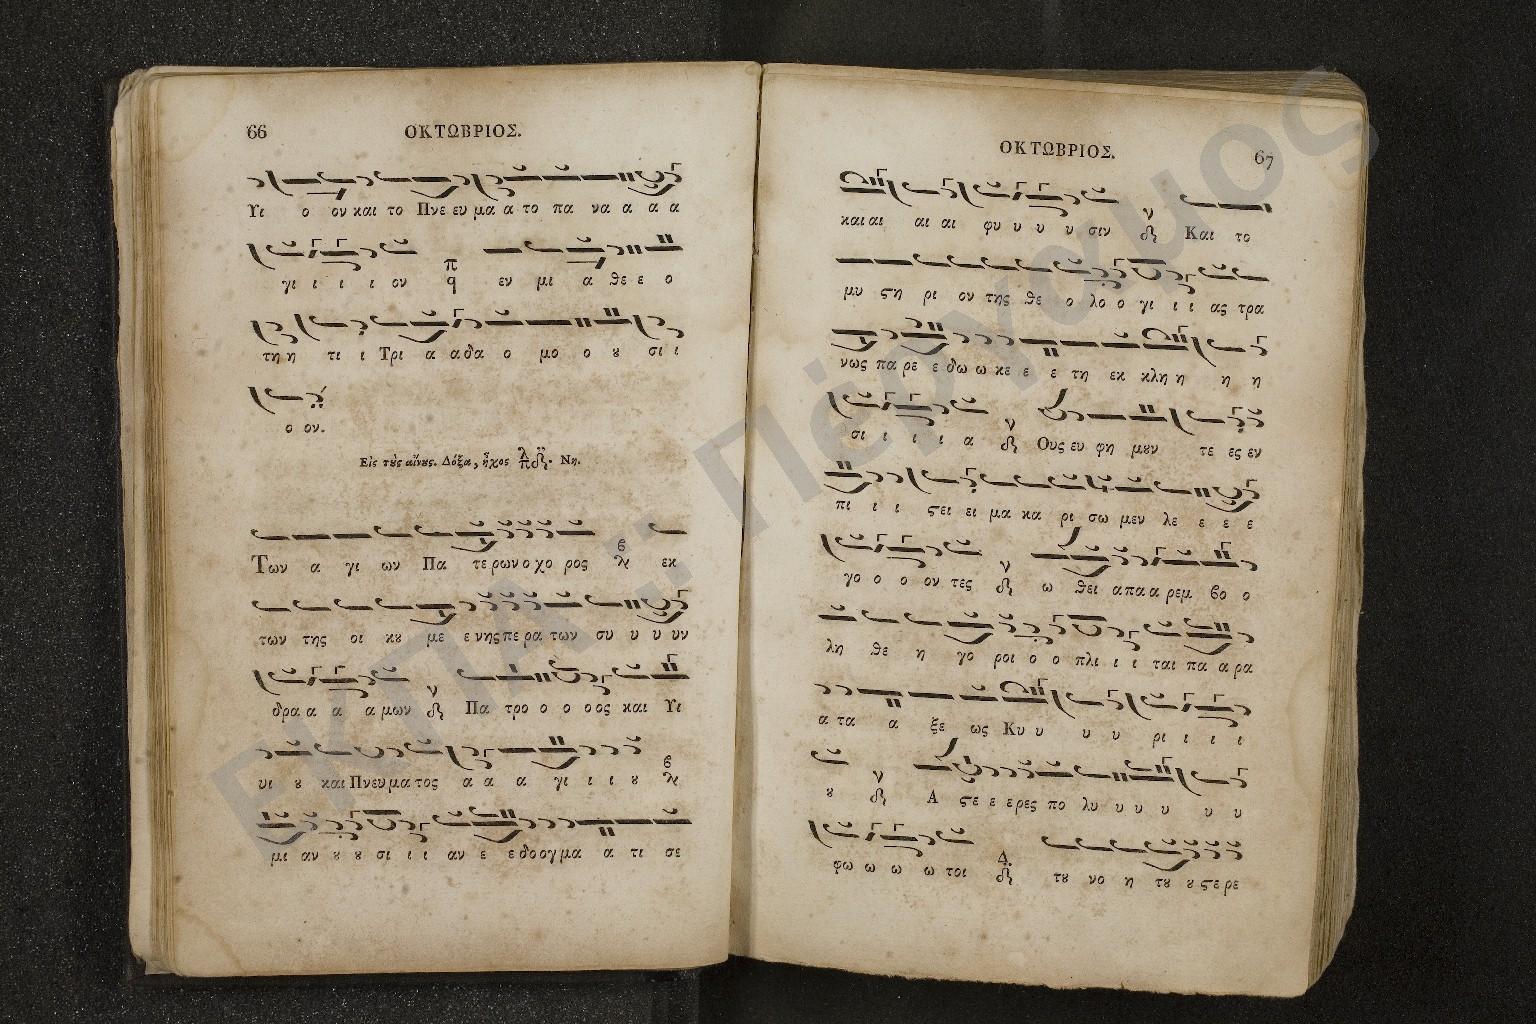 66
ΟΚΤΩΒΡΙΟΣ.
Υι ο ον και το Πνε ευ μα α το πα να α α α
γι ι ι ι ον π q εν μι α θε ε ο
τη η τι ι Τρι α α δα ο μο ο ȣ σι ι
ο ον.
Εἰς τȣ̀ς αἴνȣς. Δόξα, ἦχος Νη.
Των α γι ων Πα τε ρων ο χο ρος εκ
των της οι κȣ με ε νης πε ρα των συ υ υ υν
δρα α α α μων Πα τρο ο ο ος και Υι
υι ȣ και Πνευ μα τος α α α γι ι ι ȣ
μι αν ȣ ȣ σι ι ι αν ε ε δο ογ μα α τι σε
67
ΟΚΤΩΒΡΙΟΣ.
και αι αι αι φυ υ υ υ σιν Και το
μυ ϛη ρι ον της θε ο λο ο γι ι ι ας τρα
νως πα ρε ε δω ω κε ε ε τη εκ κλη η η η
σι ι ι ι α Ους ευ φη μȣν τε ες εν
πι ι ι ϛει ει μα κα ρι σω μεν λε ε ε ε
γο ο ο ον τες ω θει α πα α ρεμ βο ο
λη θε η γο ροι ο ο πλι ι ι ται πα α ρα
α τα α ξε ως Κυ υ υ υ ρι ι ι ι
ȣ Α ϛε ε ε ρες πο λυ υ υ υ υ υ
φω ω ω ω τοι Δ. τȣ νο η τȣ ȣ ϛε ρε
ΕΚΠΑ:: Πέργαμος